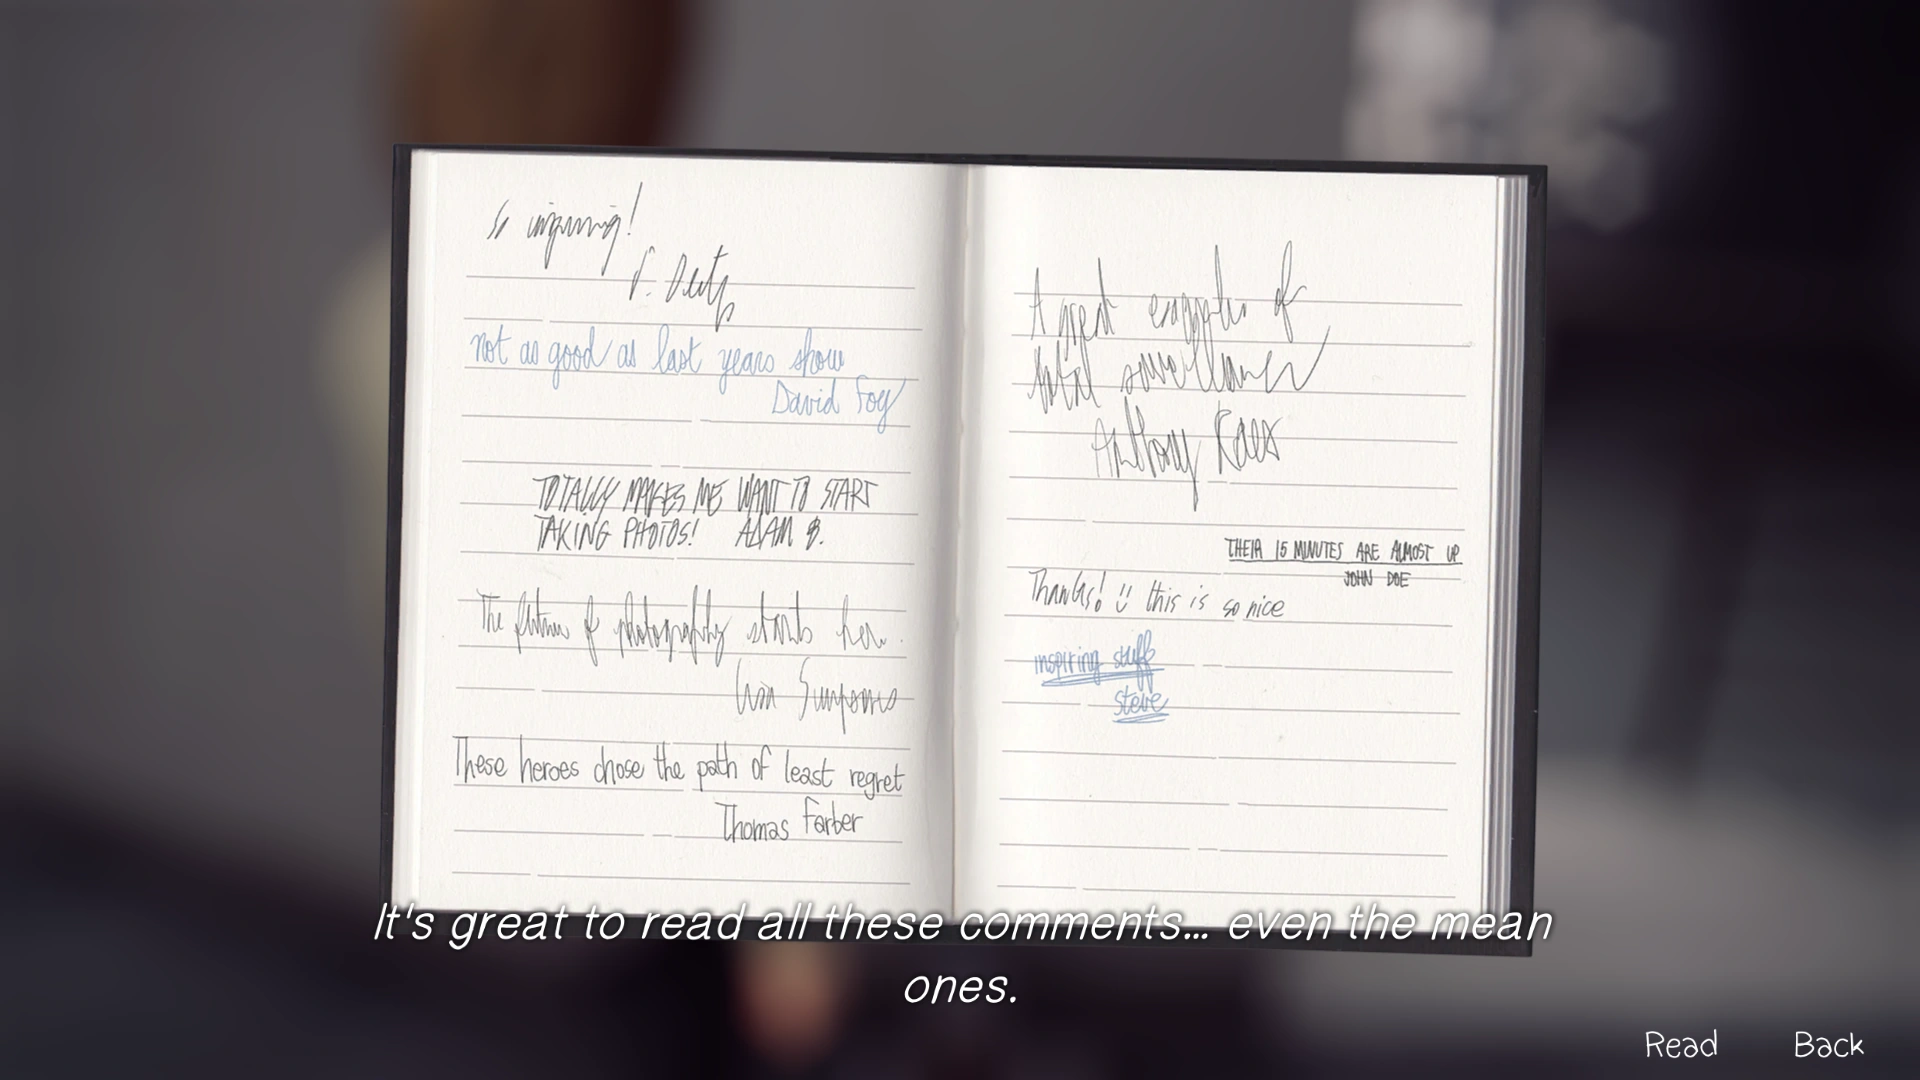 So inspiring!
not as good as last years show
David Foy
TOTALLY MAKES ME WANT TO START
TAKING PHOTOS! ADAM B.
The future of photography starts here.
Simpsons
These heroes chose the path of least regret
Thomas Farber
A great of
total surveillance
Anthony
THEIR 15 MINUTES ARE ALMOST UP
JOHN DOE
Thanks! this is so nice
inspiring stuff
steve
It's great to read all these comments... even the mean
ones.
Read Back